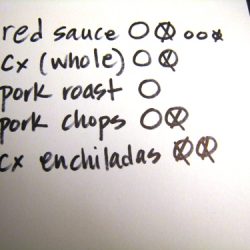 red sauce
cx (whole)
pork roast
pork chops
cx enchiladas